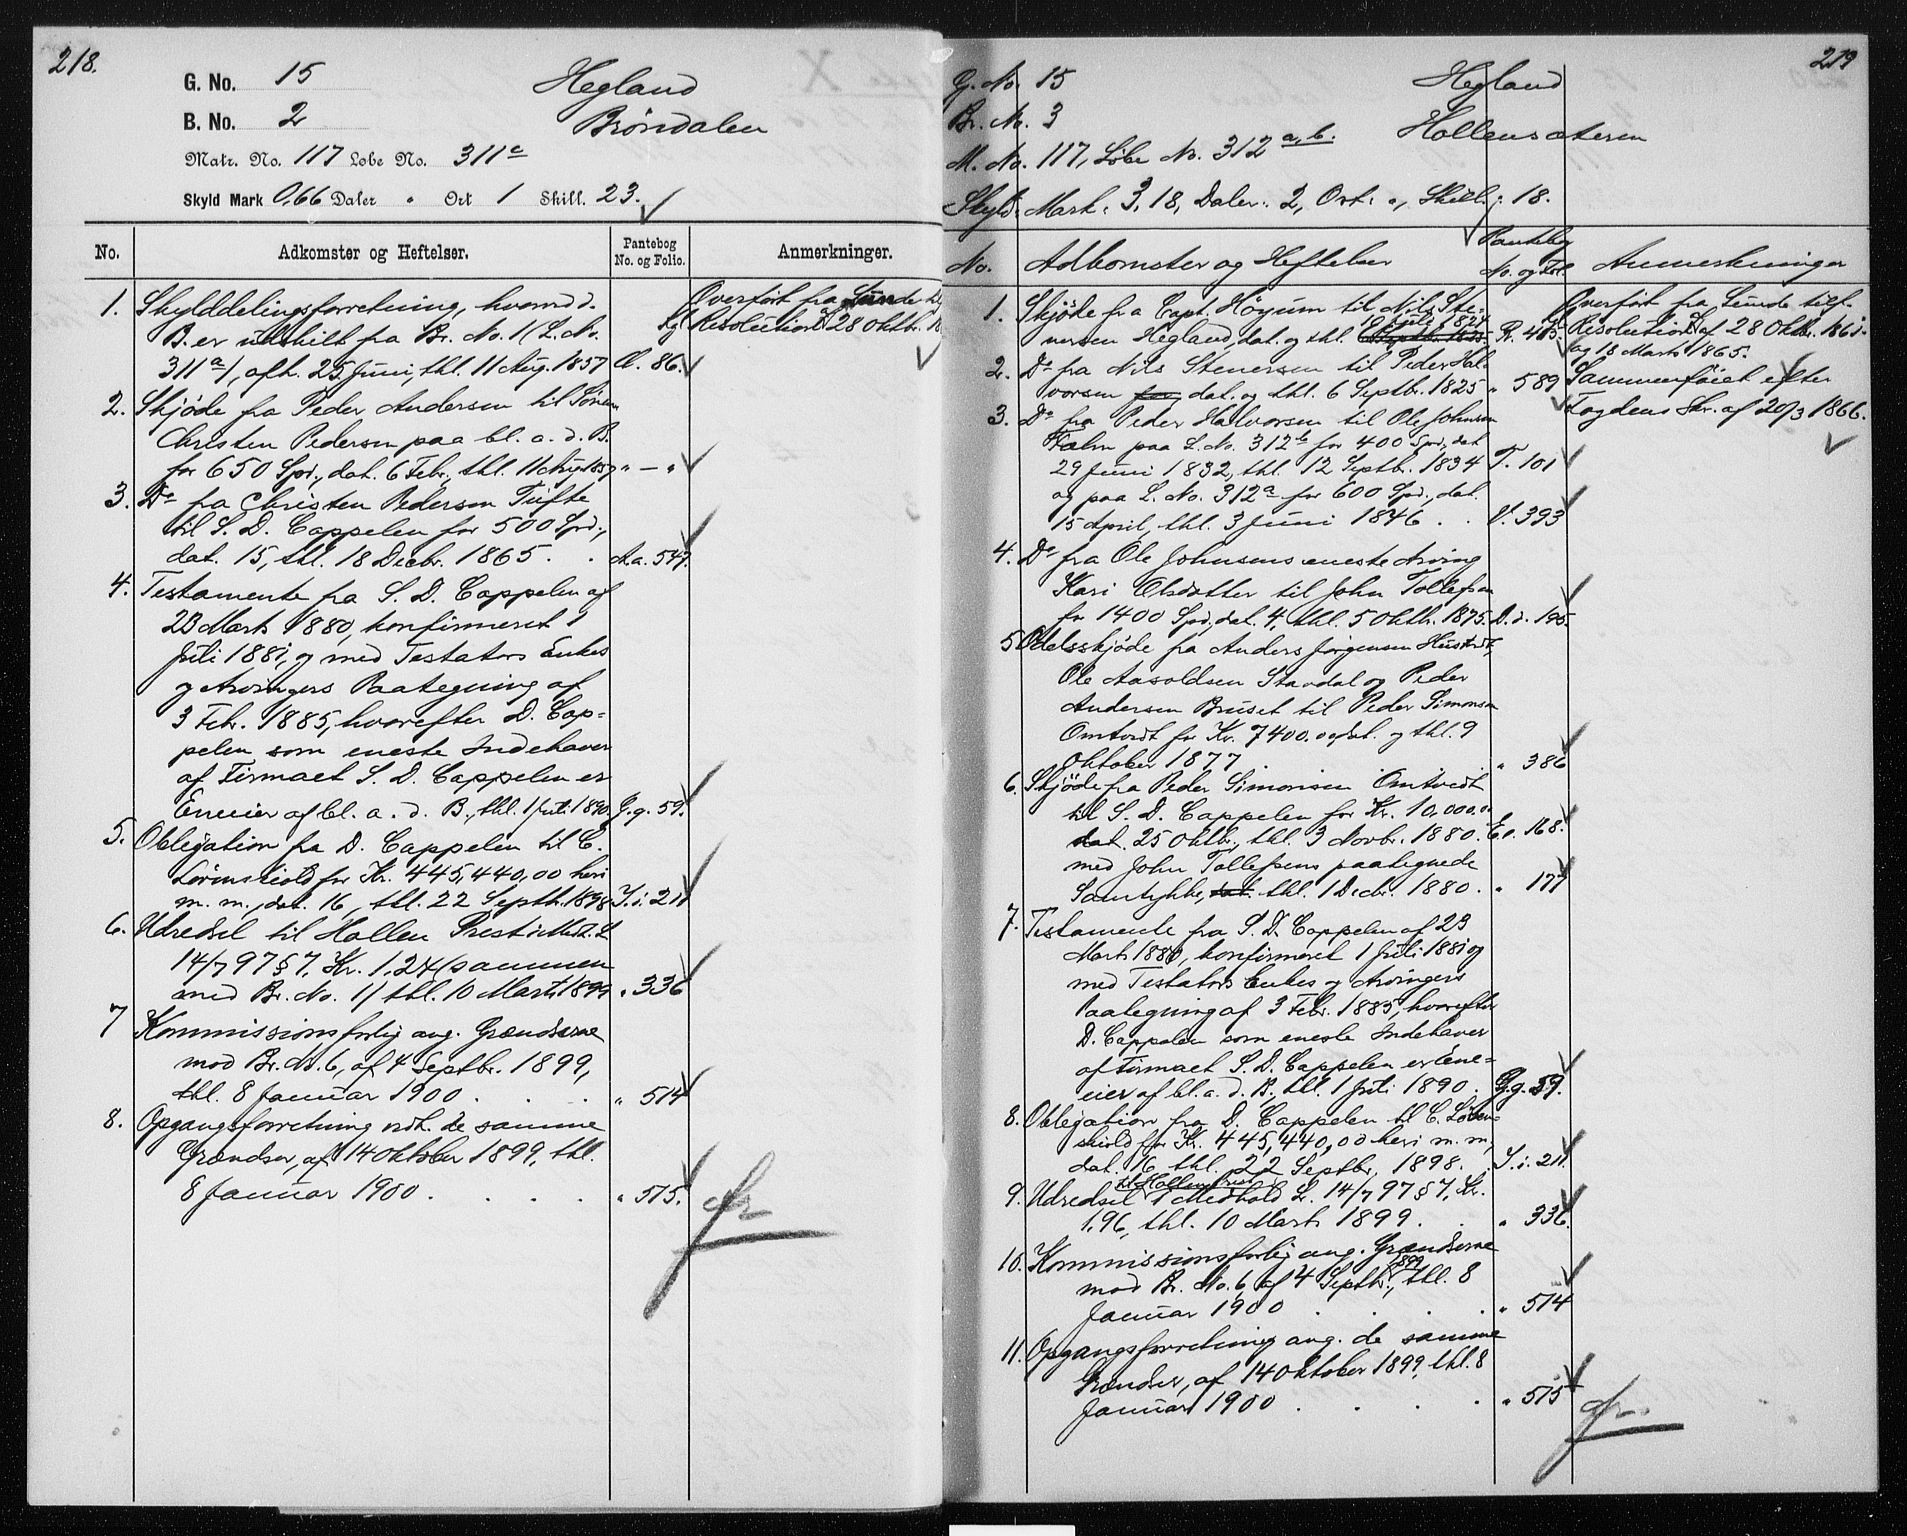 218.
G. No. 15 Hegland
B. No. 2 Bröndalen
Matr. No. 117 Løbe No. 311c
Skyld Mark 0,66 Daler " Ort 1 Skill. 23.
No. Adkomster og Heftelser. Pantebog No. og Folio. Anmerkninger.
1. Skylddelingsforretning, hvorved d.
B. er udskilt fra Br. No. 1 (L. No.
311a), afh. 25 Juni, thl. 11 Aug. 1857 A. 86.
Overført fra Lunde
Resolution af 28 Oktbr.
2. Skjöde fra Peder Andersen til Sören
Christen Pedersen paa bl. a. d. B.
for 650 Spd., dat. 6 Febr., thl. 11 Aug. 1857 " — "
3. Do fra Christen Pedersen Tufte
til S. D. Cappelen for 500 Spd.,
dat. 15, thl. 18 Decbr. 1865 . . Aa. 547.
4. Testamente fra S. D. Cappelen af
23 Marts 1880, konfirmeret 1
Juli 1881, og med Testators Enkes
og Arvingers Paategning af
3 Febr. 1885, hvorefter D. Cap=
pelen som eneste Indehaver
af Firmaet S. D. Cappelen er
Eneeier af bl. a. d. B., thl. 1 Juli 1890. G.g. 59.
5. Obligation fra D. Cappelen til C.
Lövenskiold for Kr. 445,440,00 heri
m. m., dat. 16, thl. 22 Septbr. 1898 I.i. 211
6. Udredsel til Hollen Prest i Medh. L.
14/7 97 § 7, Kr. 1,24 (sammen
med Br. No. 1) thl. 10 Marts 1899 " 336
7 Kommissionsforlig ang. Grændserne
mod Br. No. 6, af 4 Septbr. 1899,
thl. 8 Januar 1900 . . . " 514
8. Opgangsforretning vedk. de samme
Grændser, af 14 Oktober 1899, thl.
8 Januar 1900 . . . . " 515.
219
G. No. 15 Hegland
Br. No. 3 Hollensæteren
M. No. 117, Løbe No. 312 a, b.
Skyld: Mark: 3,18, Daler: 2, Ort: ", Skill.: 18.
No. Adkomster og Heftelser Pantebog No. og Fol. Anmerkninger
1. Skjöde fra Capt. Höyum til Nils Ste-
nersen Hegland, dat. og thl. R. 415.
Overført fra Lunde tilf.
Kgl. Resolution af 28 Oktbr. 1861
og 18 Marts 1865.
2. Do fra Nils Stenersen til Peder Hal-
vorsen for, dat. og thl. 6 Septbr. 1825 " 589
Sammenföiet efter
Fogdens Skr. af 20/3 1866.
3. Do fra Peder Halvorsen til Ole Johnsen
paa L. No. 312b for 400 Spd., dat.
29 Juni 1832, thl. 12 Septbr. 1834 T. 101
og paa L. No. 312a for 600 Spd., dat.
15 April, thl. 3 Juni 1846 . . V. 393
4. Do fra Ole Johnsens eneste Arving
Kari Olsdatter til John Tollefsen
for 1400 Spd., dat. 4, thl. 5 Oktbr. 1875. D.d. 195.
5 Odelsskjöde fra Anders Jörgensen Hustvedt,
Ole Aasoldsen Stavdal og Peder
Andersen Bruset til Peder Simonsen
Omtvedt for Kr. 7400.00, dat. og thl. 9
Oktober 1877 . . . " 386
6. Skjöde fra Peder Simonsen Omtvedt
til S. D. Cappelen for Kr. 10,000.00
dat. 25 Oktbr., thl. 3 Novbr. 1880. E.e. 168.
med John Tollefsens paategnede
Samtykke, dat. thl. 1 Decbr. 1880. " 177
7. Testamente fra S. D. Cappelen af 23
Marts 1880, konfirmeret 1 Juli 1881 og
med Testators Enkes og Arvingers
Paategning af 3 Febr. 1885, hvorefter
D. Cappelen som eneste Indehaver
af Firmaet S. D. Cappelen er Ene=
eier af bl. a. d. B., thl. 1 Juli 1890. G.g. 59.
8. Obligation fra D. Cappelen til C. Löven-
skiold for Kr. 445,440,00 heri m. m.,
dat. 16 thl. 22 Septbr. 1898. . I.i. 211.
9. Udredsel til Hollen Prest i Medhold L. 14/7 97 § 7, Kr.
1,96, thl. 10 Marts 1899 . . " 336.
10. Kommissionsforlig ang. Grændserne
mod Br. No. 6, af 4 Septbr. 1899, thl. 8
Januar 1900 . . . . " 514
11. Opgangsforretning ang. de samme
Grændser, af 14 Oktober 1899, thl. 8
Januar 1900 . . . . " 515